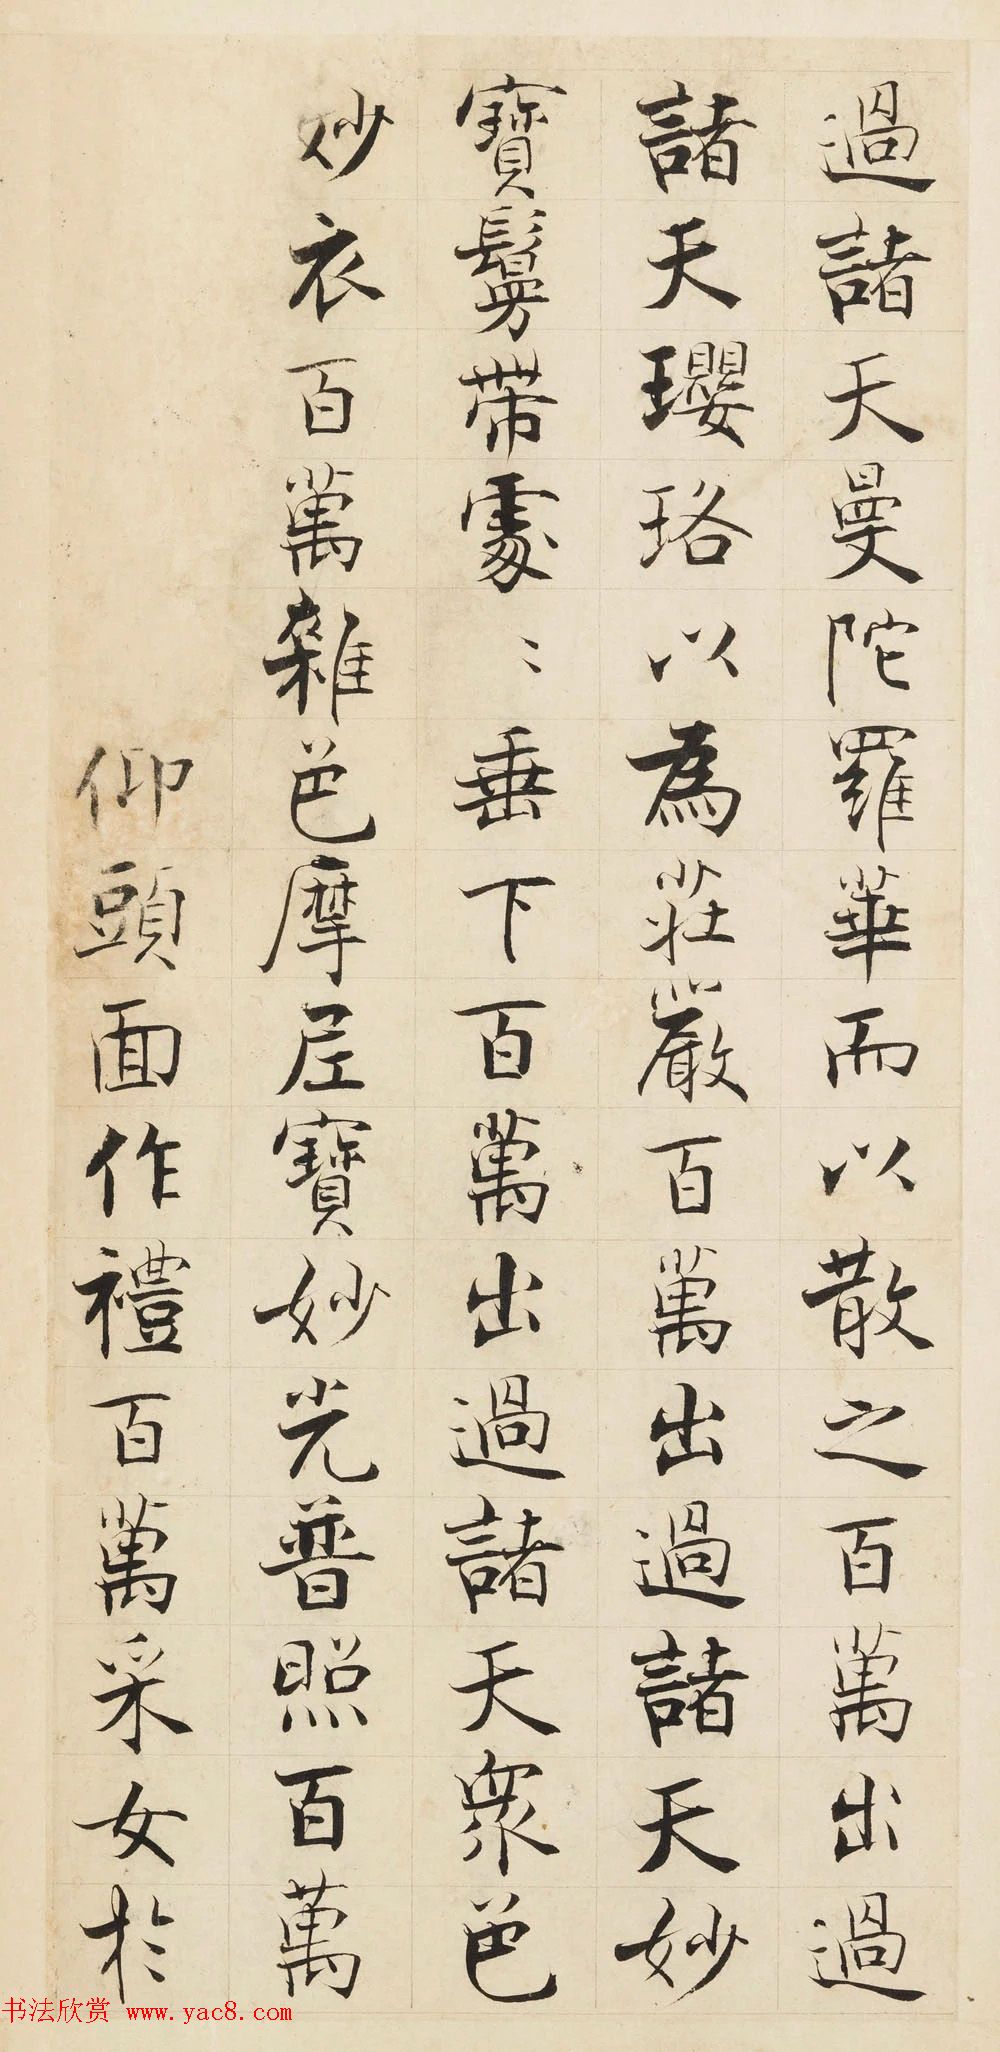 過諸天曼陀羅華而以散之百萬出過
諸天瓔珞以為莊嚴百萬出過諸天妙
寶鬘帶處〻垂下百萬出過諸天眾色
妙衣百萬雜色摩尼寶妙光普照百萬
仰頭面作禮百萬采女於
书法欣赏 www.yac8.com